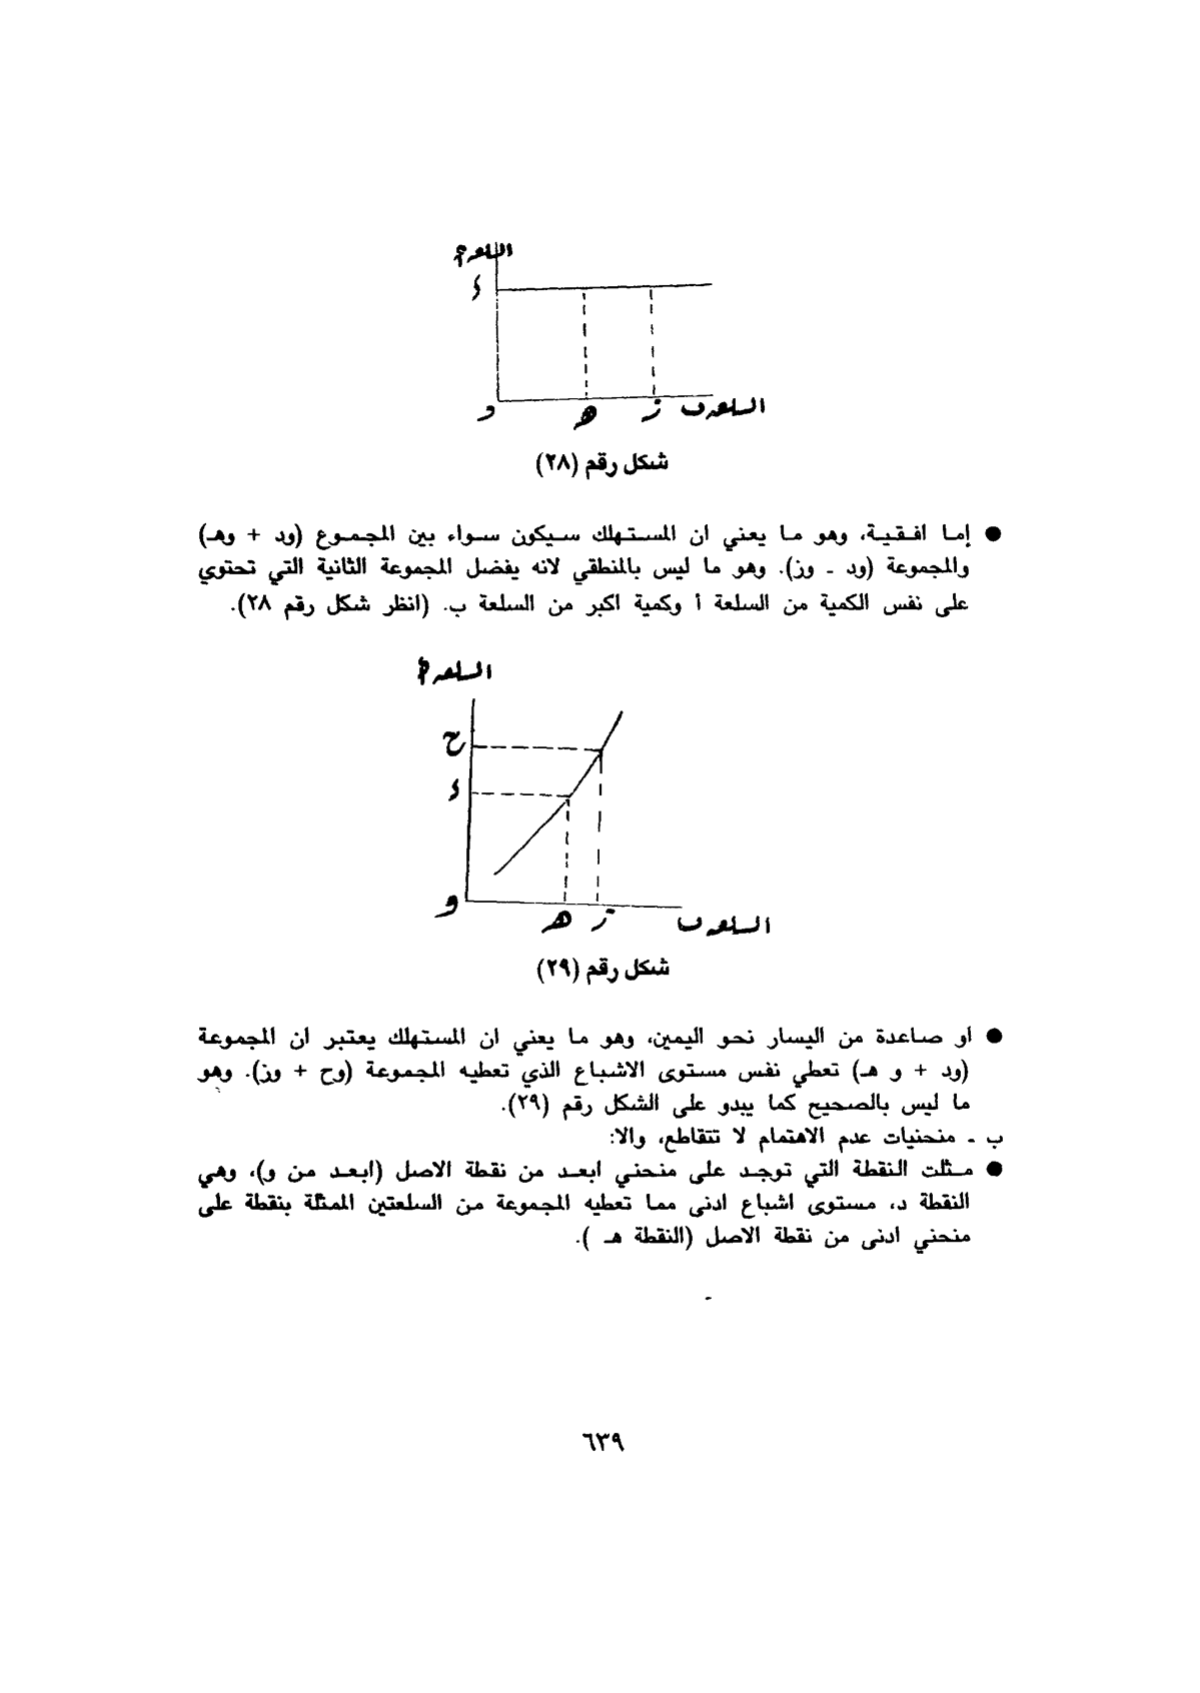 السلعة أ
د
و
هـ
ز
السلعة ب
شكل رقم (٢٨)
● إما افقية، وهو ما يعني ان المستهلك سيكون سواء بين المجموع (ود + وهـ)
والمجموعة (ود - وز). وهو ما ليس بالمنطقي لانه يفضل المجموعة الثانية التي تحتوي
على نفس الكمية من السلعة أ وكمية اكبر من السلعة ب. (انظر شكل رقم ٢٨).
السلعة أ
ح
د
و
هـ
ز
السلعة ب
شكل رقم (٢٩)
● او صاعدة من اليسار نحو اليمين، وهو ما يعني ان المستهلك يعتبر ان المجموعة
(ود + و هـ) تعطي نفس مستوى الاشباع الذي تعطيه المجموعة (وح + وز). وهو
ما ليس بالصحيح كما يبدو على الشكل رقم (٢٩).
ب - منحنيات عدم الاهتمام لا تتقاطع، والا:
● مثلت النقطة التي توجد على منحني ابعد من نقطة الاصل (ابعد من و)، وهي
النقطة د، مستوى اشباع ادنى مما تعطيه المجموعة من السلعتين الممثلة بنقطة على
منحني ادنى من نقطة الاصل (النقطة هـ ).
٦٣٩